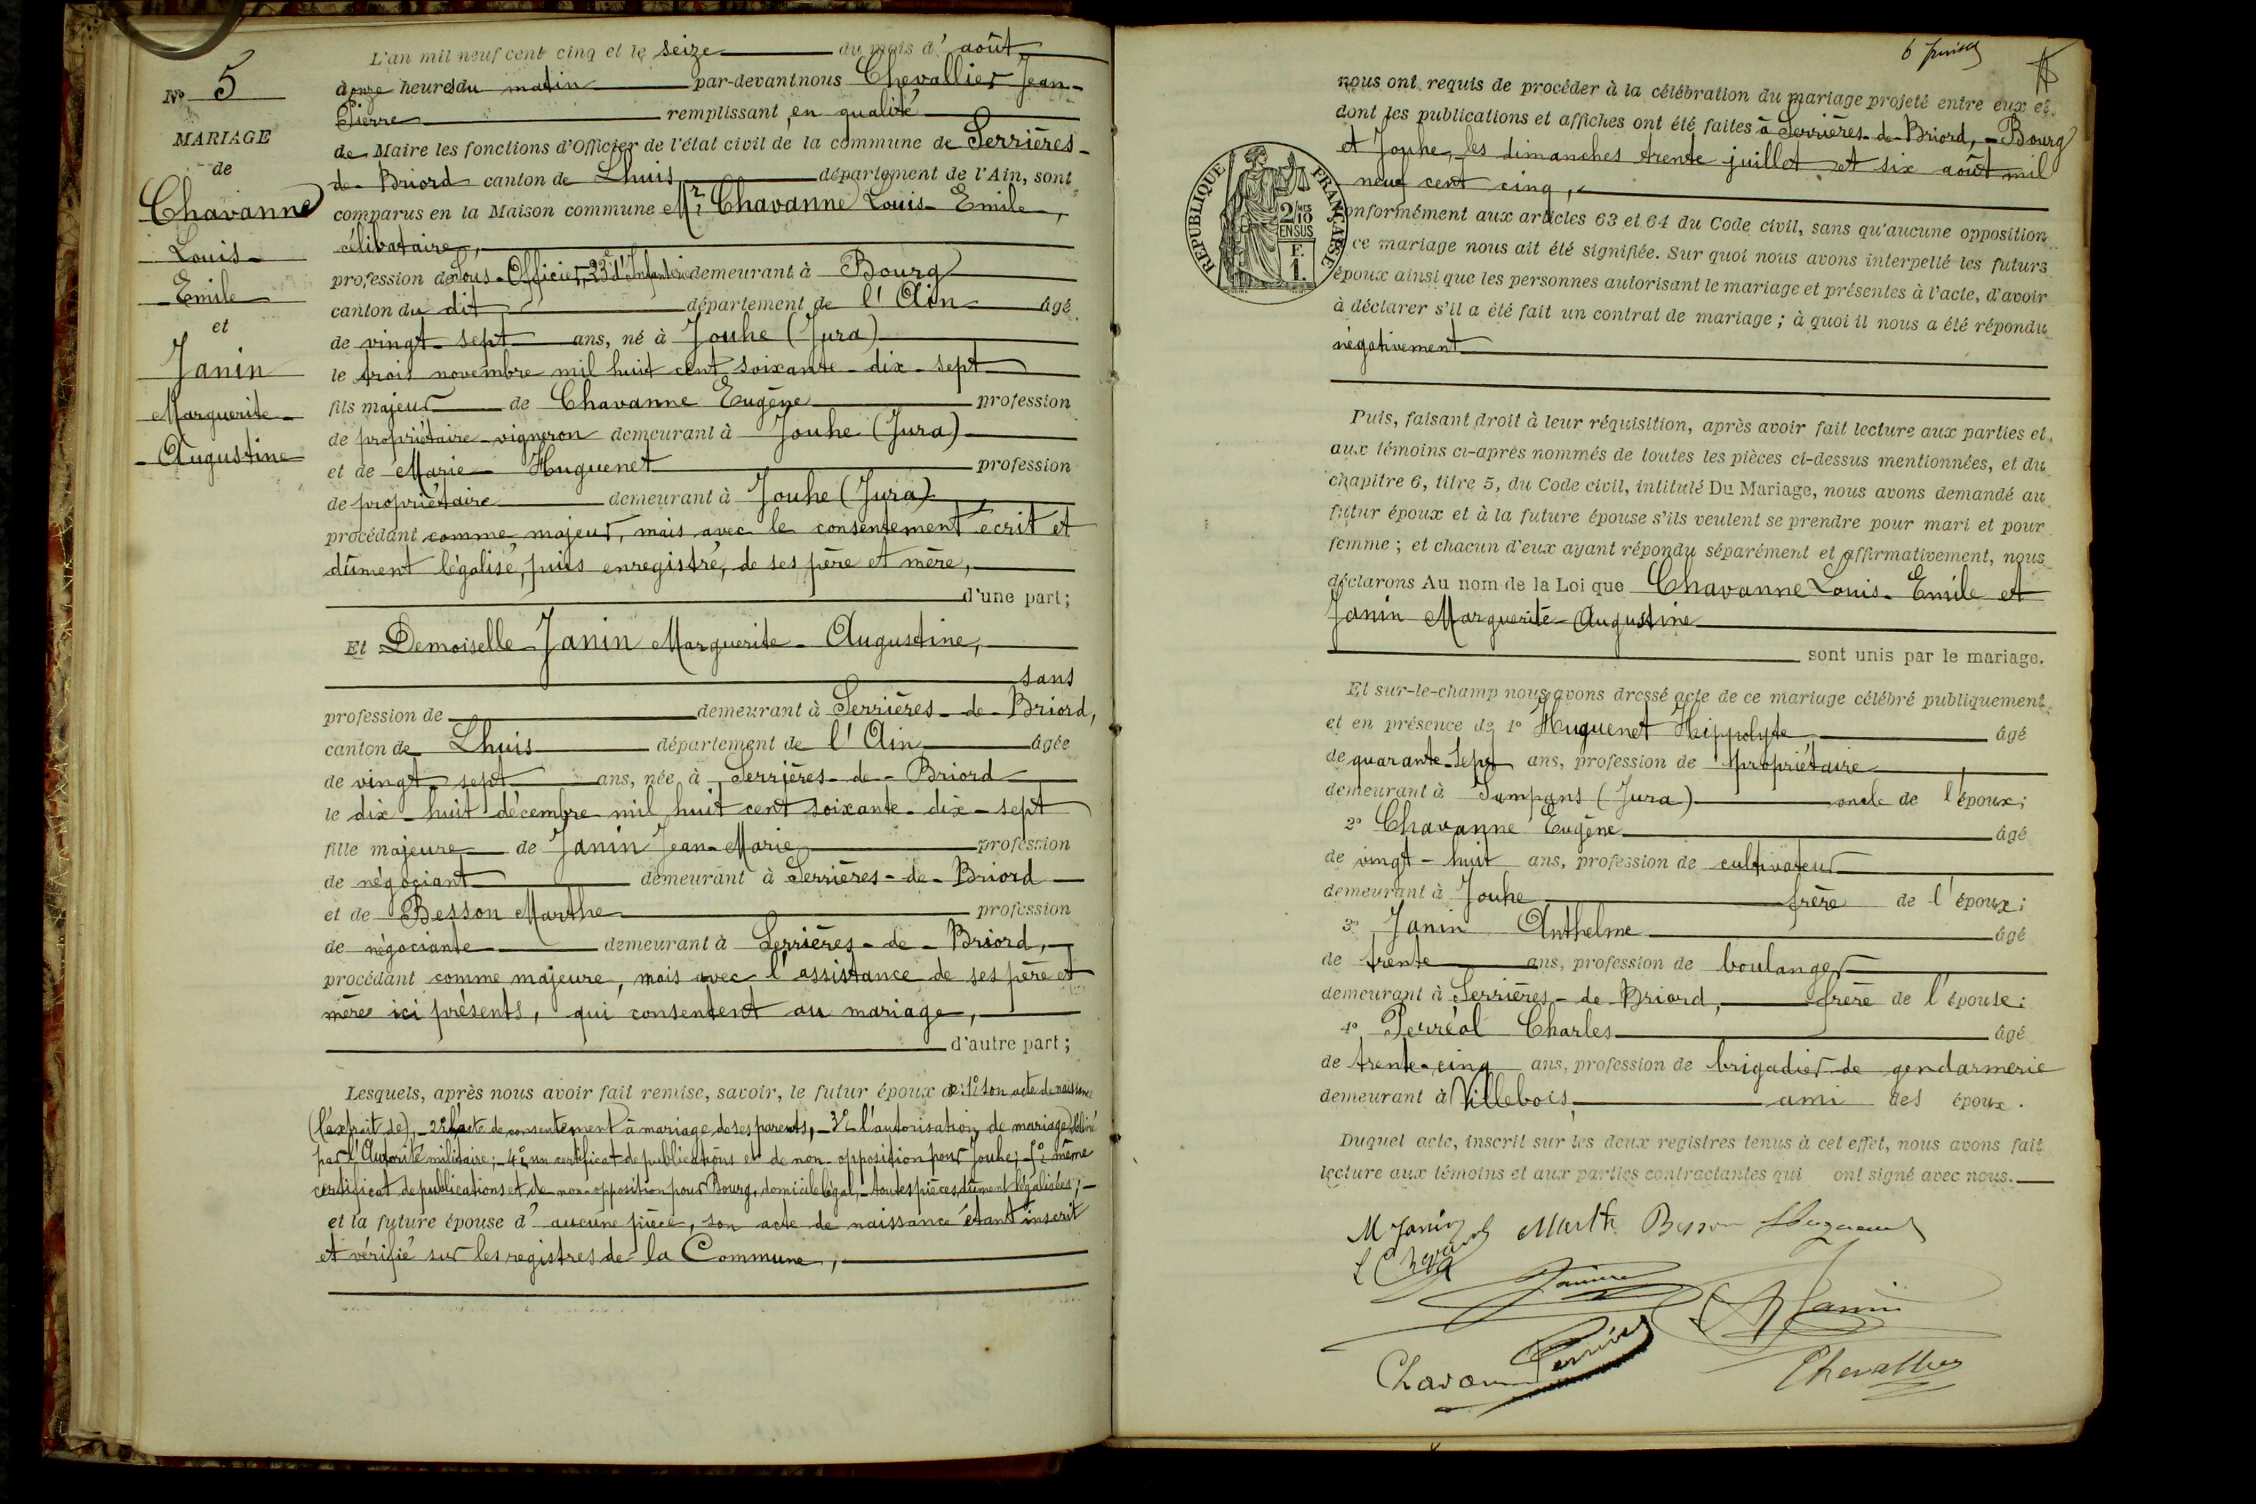 N° 5
MARIAGE
de
Chavanne
Louis-
Emile
et
Janin
Marguerite-
Augustine
L'an mil neuf cent cinq et le seize du mois d'août
à onze heures du matin par-devant nous Chevallier Jean-
Pierre remplissant, en qualité
de Maire les fonctions d'Officier de l'état civil de la commune de Serrières-
de-Briord canton de Lhuis département de l'Ain, sont
comparus en la Maison commune Mr Chavanne Louis-Emile,
célibataire,
profession de Sous-Officier, 23e d'Infanterie demeurant à Bourg
canton du dit département de l'Ain âgé
de vingt-sept ans, né à Jouhe (Jura)
le trois novembre mil huit cent soixante-dix-sept
fils majeur de Chavanne Eugène profession
de propriétaire-vigneron demeurant à Jouhe (Jura)
et de Marie Huguenet profession
de propriétaire demeurant à Jouhe (Jura)
procédant comme majeur, mais avec le consentement écrit et
dûment légalisé, puis enregistré, de ses père et mère,
d'une part;
Et Demoiselle Janin Marguerite-Augustine,
sans
profession de demeurant à Serrières-de-Briord,
canton de Lhuis département de l'Ain âgée
de vingt-sept ans, née à Serrières-de-Briord
le dix-huit décembre mil huit cent soixante-dix-sept
fille majeure de Janin Jean-Marie profession
de négociant demeurant à Serrières-de-Briord
et de Besson Marthe profession
de négociante demeurant à Serrières-de-Briord,
procédant comme majeure, mais avec l'assistance de ses père et
mère ici présents, qui consentent au mariage,
d'autre part;
Lesquels, après nous avoir fait remise, savoir, le futur époux de: 1° son acte de naissance
(l'extrait de), - 2° l'acte de consentement à mariage de ses parents, - 3° l'autorisation de mariage délivré
par l'Autorité militaire; - 4°, un certificat de publications et de non-opposition pour Jouhe; - 5° même
certificat de publications et de non-opposition pour Bourg, domicile légal, - toutes pièces dûment légalisées; -
et la future épouse d'aucune pièce, son acte de naissance étant inscrit
et vérifié sur les registres de la Commune,
6
nous ont requis de procéder à la célébration du mariage projeté entre eux et
dont les publications et affiches ont été faites à Serrières-de-Briord, - Bourg
et Jouhe, les dimanches trente juillet et six août mil
neuf cent cinq,
RÉPUBLIQUE FRANÇAISE
2/10 MES
EN SUS
F.
1.
onformément aux articles 63 et 64 du Code civil, sans qu'aucune opposition
ce mariage nous ait été signifiée. Sur quoi nous avons interpellé les futurs
époux ainsi que les personnes autorisant le mariage et présentes à l'acte, d'avoir
à déclarer s'il a été fait un contrat de mariage; à quoi il nous a été répondu
négativement
Puis, faisant droit à leur réquisition, après avoir fait lecture aux parties et
aux témoins ci-après nommés de toutes les pièces ci-dessus mentionnées, et du
chapitre 6, titre 5, du Code civil, intitulé Du Mariage, nous avons demandé au
futur époux et à la future épouse s'ils veulent se prendre pour mari et pour
femme; et chacun d'eux ayant répondu séparément et affirmativement, nous
déclarons Au nom de la Loi que Chavanne Louis-Emile et
Janin Marguerite-Augustine
sont unis par le mariage.
Et sur-le-champ nous avons dressé acte de ce mariage célébré publiquement
et en présence de 1° Huguenet Hippolyte âgé
de quarante-sept ans, profession de propriétaire
demeurant à Sampans (Jura) oncle de l'époux;
2° Chavanne Eugène âgé
de vingt-huit ans, profession de cultivateur
demeurant à Jouhe frère de l'époux;
3° Janin Anthelme âgé
de trente ans, profession de boulanger
demeurant à Serrières-de-Briord, frère de l'épouse;
4° Perréal Charles âgé
de trente-cinq ans, profession de brigadier de gendarmerie
demeurant à Villebois, ami des époux.
Duquel acte, inscrit sur les deux registres tenus à cet effet, nous avons fait
lecture aux témoins et aux parties contractantes qui ont signé avec nous.
M Janin Marthe Besson Huguenet
L Chavanne
Janin
A Janin
Chavanne
Chevallier